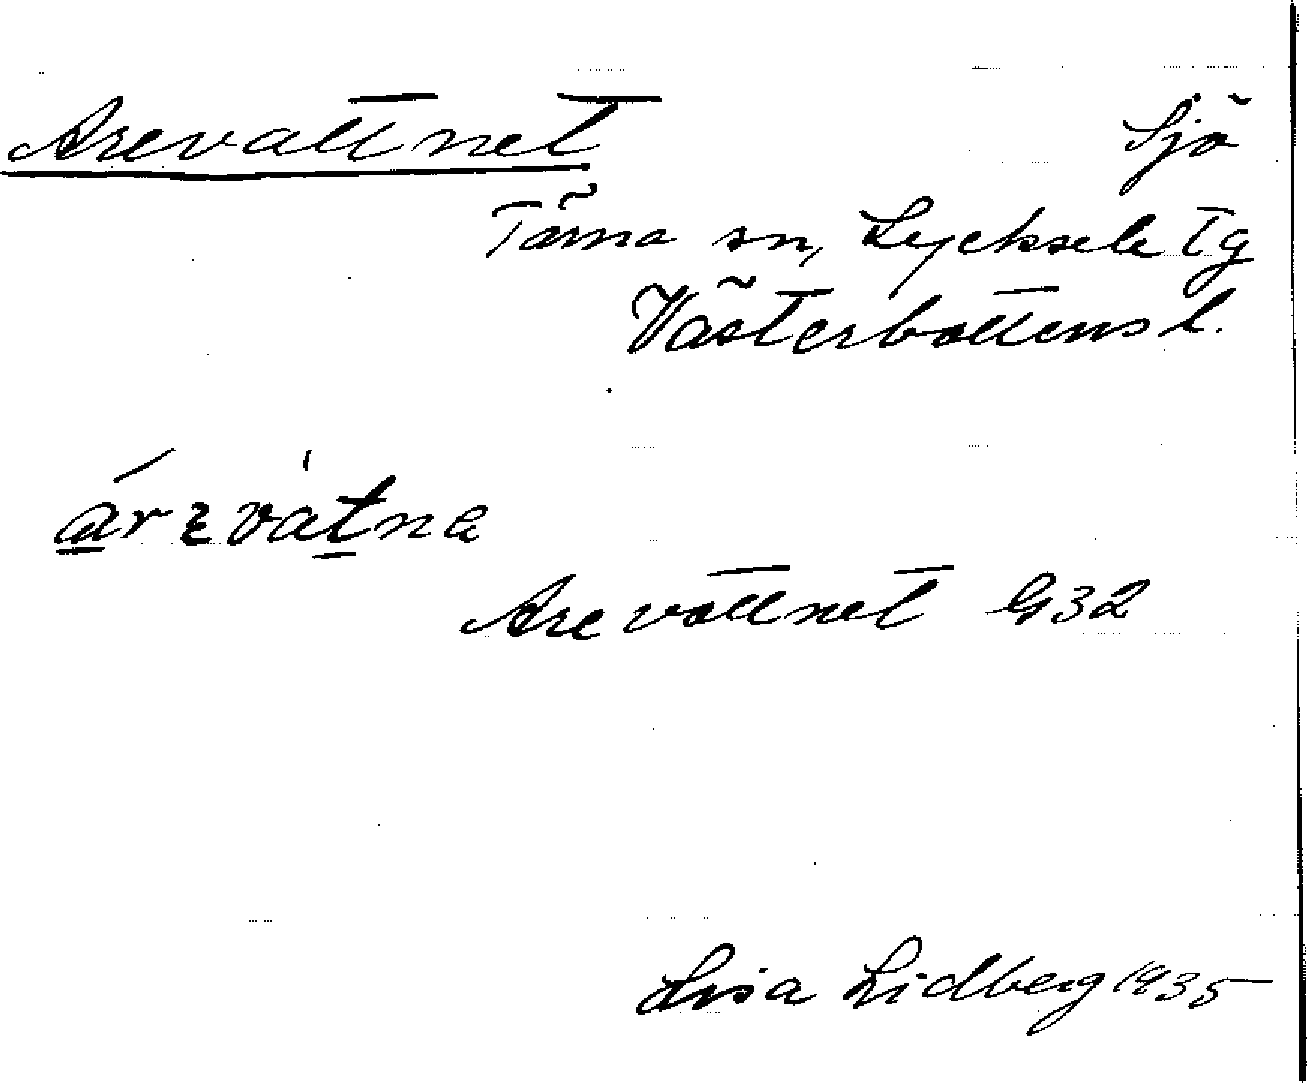 Arevattnet Sjö
Tärna sn, Lycksele Tg
Västerbottens l.
árɛvàtna
Arevattnet G32
Lisa Lidberg 1935